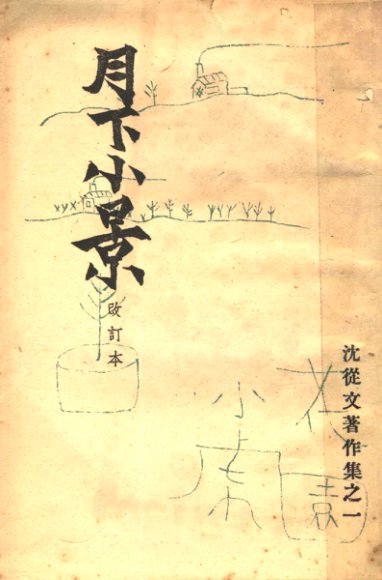 月下小景
改訂本
沈從文著作集之一